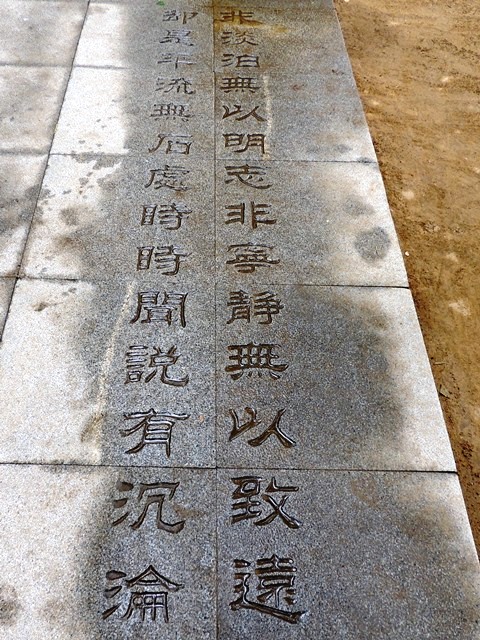 非淡泊無以明志非寧靜無以致遠
却是平流無石處時時聞說有沉淪